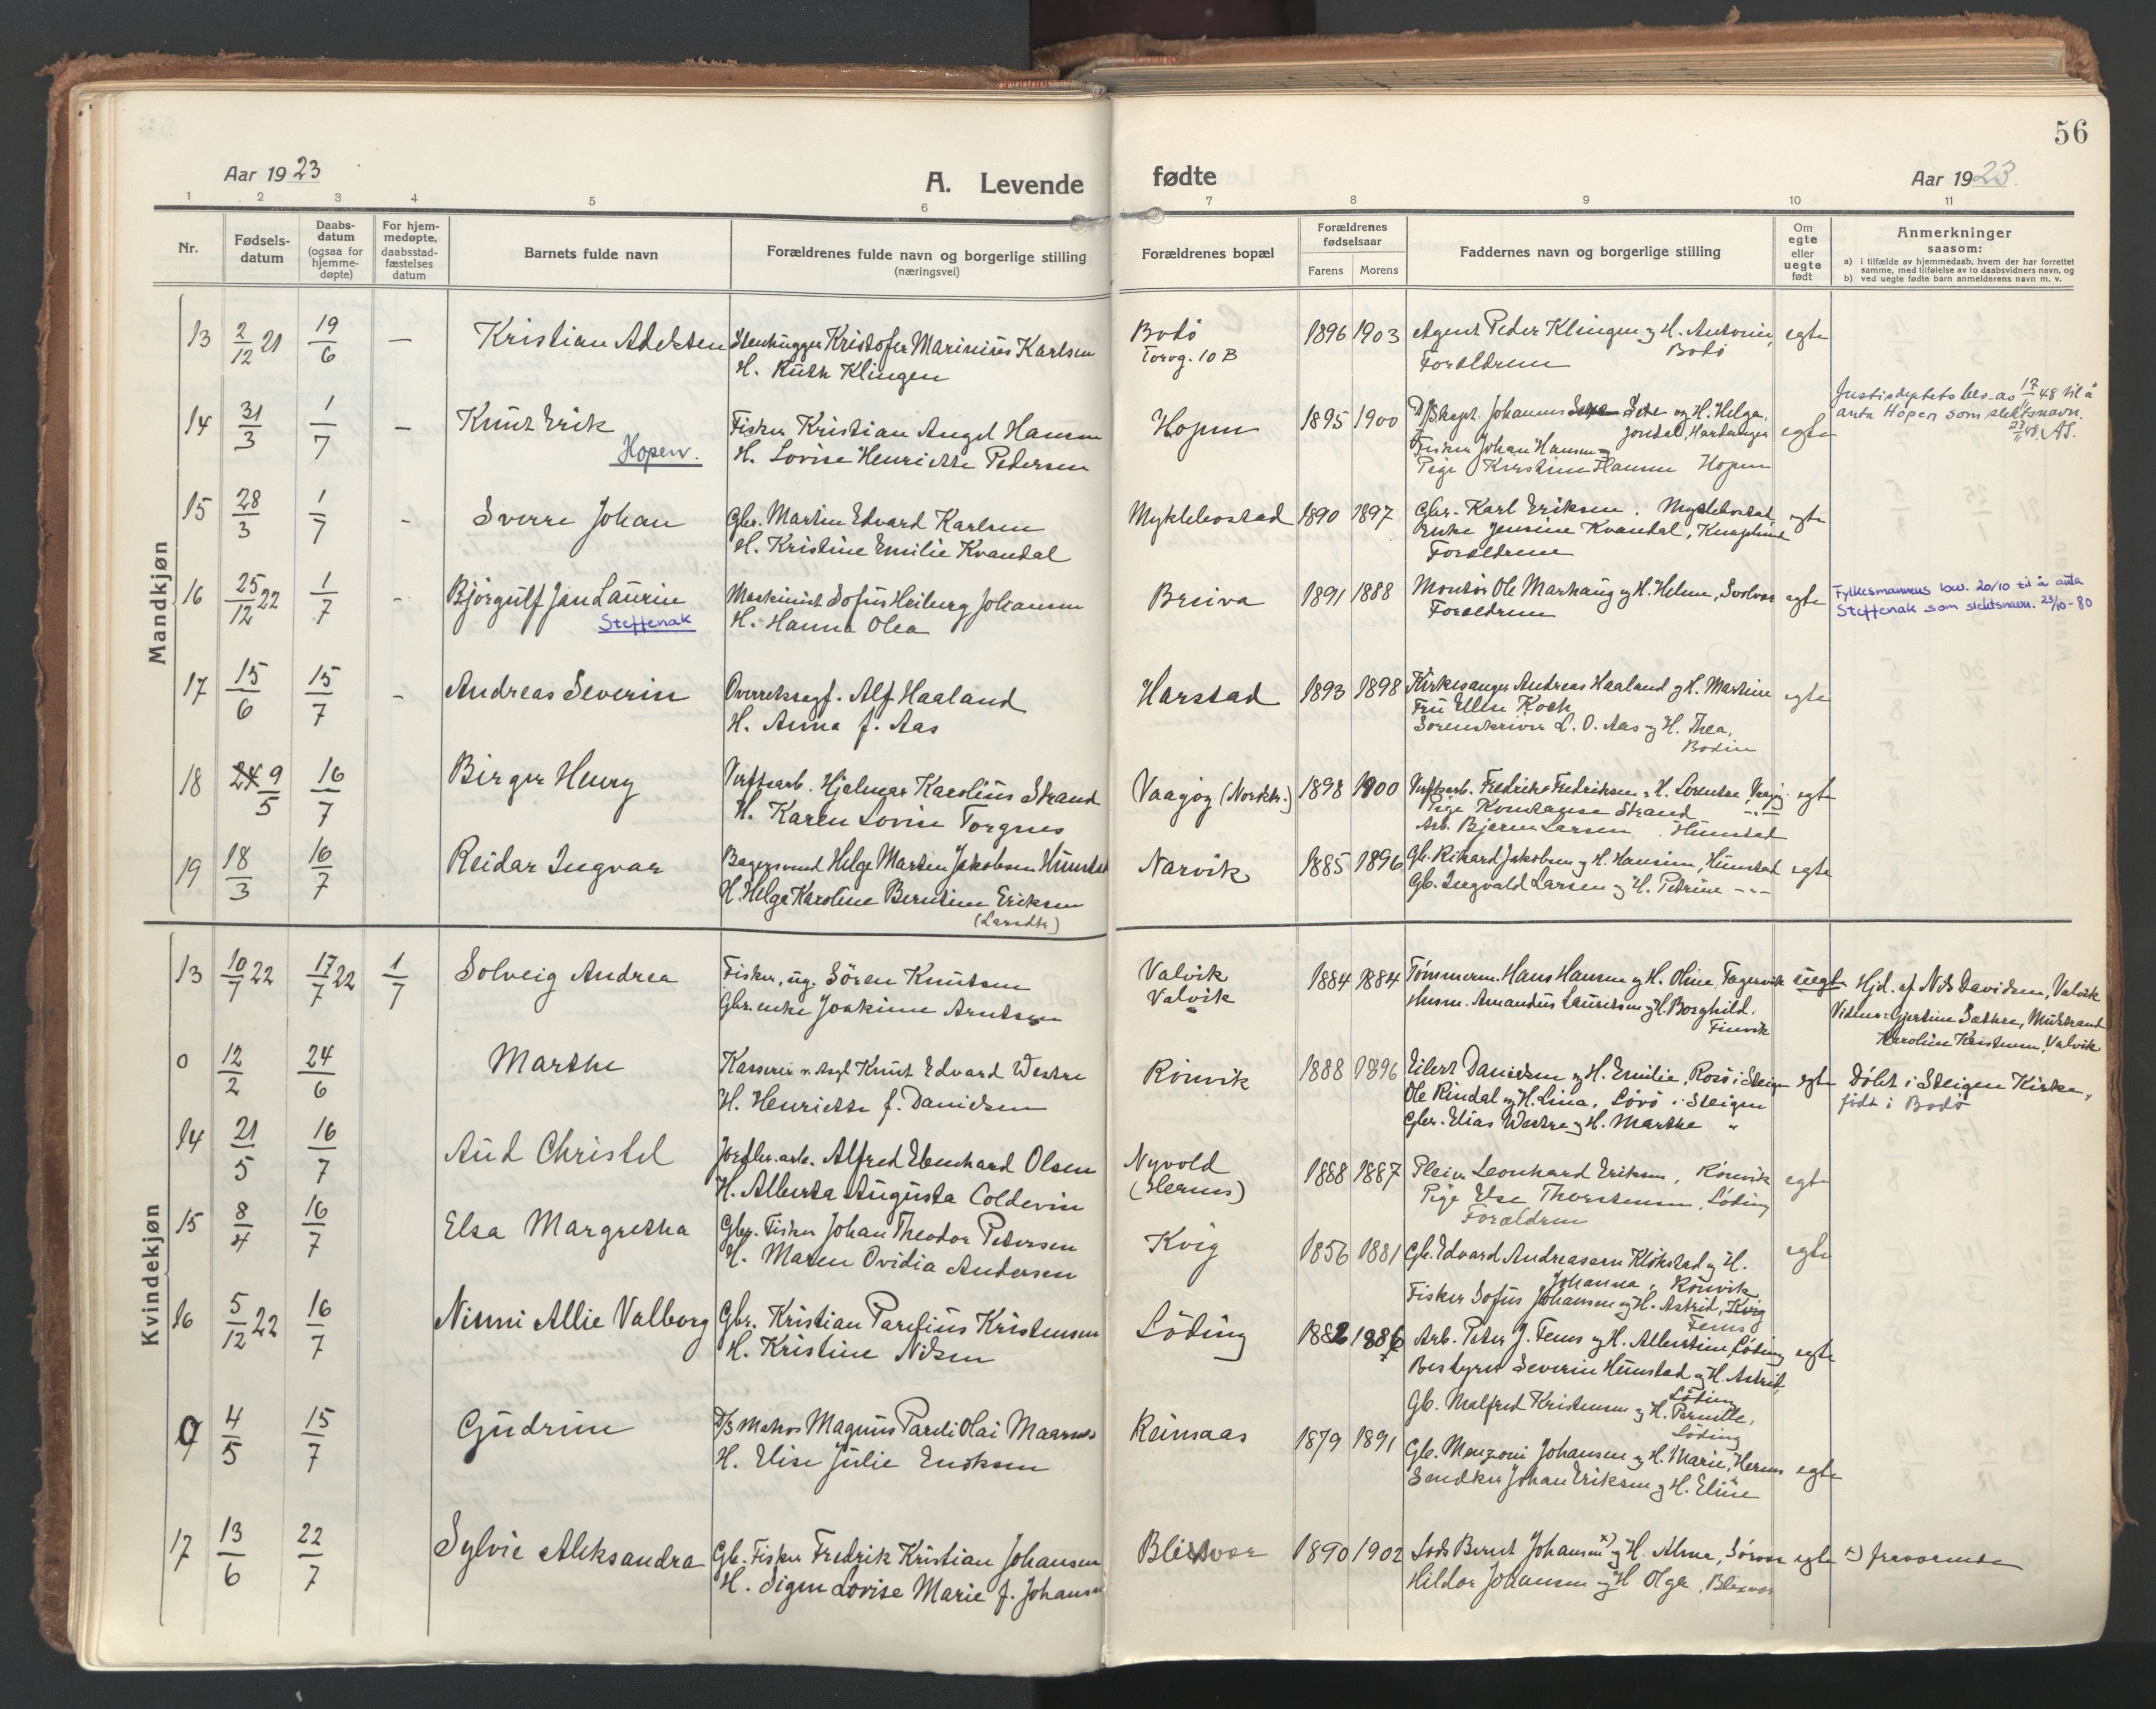 56
Aar 1923
A. Levende fødte
Aar 1923.
1 2 3 4 5 6 7 8 9 10 11
Nr.
Fødselsdatum
Daabsdatum (ogsaa for hjemmedøpte)
For hjemmedøpte, daabsstadfæstelses datum
Barnets fulde navn
Forældrenes fulde navn og borgerlige stilling
(næringsvei)
Forældrenes bopæl
Forældrenes fødselsaar
Farens Morens
Faddernes navn og borgerlige stilling
Om egte eller uegte født
Anmerkninger
saasom:
a) i tilfælde av hjemmedaab, hvem der har forrettet samme, med tilføielse av to daabsvidners navn, og
b) ved uegte fødte barn anmelderens navn m. v.
Mandkjøn
13 2/12 21 19/6 — Kristian Adelsten Stenhugger Kristofer Marinius Karlsen
H. Ruth Klingen
Bodö
Torvg. 10 B
1896 1903 Agent Peder Klingen og H. Antonie, Bodö
Foreldrene
egte
14 31/3 1/7 — Knut Erik
Hopen.
Fisker Kristian Angel Hansen
H. Lovise Henriette Pedersen
Hopen 1895 1900 D/Skapt. Johannes Sexe og H. Helga,
Jondal, Hardanger
Fisker Johan Hansen
Pige Kirstine Hansen Hopen
egte
Justisdeptets bev. av 17/11 48 til å
anta Hopen som slektsnavn.
23/11 48. AS.
15 28/3 1/7 - Sverre Johan Gbr. Martin Edvard Karlsen
H. Kristine Emilie Kvandal
Myklebostad 1890 1897 Gbr. Karl Eriksen. Myklebostad
Enke Jensine Kvandal, Knaplund
Foreldrene
egte
16 25/12 22 1/7 - Bjørgulf Jan Laurin
Steffenak
Maskinist Sofus Heiberg Johansen
H. Hanna Olea
Breiva 1891 1888 Montör Ole Marhaug og H. Helene, Svolvær
Foreldrene
egte
Fylkesmannens bev. 20/10 til å anta
Steffenak som slektsnavn. 23/10-80
17 15/6 15/7 - Andreas Severin Overretssagf. Alf Haaland
H. Anna f. Aas
Harstad 1893 1898 Kirkesanger Andreas Haaland og H. Martine
Fru Ellen Koch
Sorenskriver L. O. Aas og H. Thea,
Bodin
egte
18 9/5 16/7 Birger Henry Verftsarb. Hjalmar Karolius Strand
H. Karen Lovise Torgnes
Vaagöy (Nordstr.) 1898 1900 Verftsarb. Fredrik Fredriksen og H. Lorentse, Vaagöy
Pige Konstanse Strand
Arb. Bjarne Larsen, Hunstad
egte
19 18/3 16/7 Reidar Ingvar Bagersvend Helge Martin Jakobsen Hunstad
H. Helga Karoline Berntine Eriksen
(Larsdtr)
Narvik 1885 1896 Gb. Rikard Jakobsen og H. Hansine, Hunstad
Gb. Ingvald Larsen og H. Petrine -"-
egte
Kvindekjøn
13 10/7 22 17/7 22 1/7 Solveig Andrea Fisker, ug. Sören Knutsen
Gbr. enke Joakime Arntsen
Valvik
Valvik
1884 1884 Tömmerm. Hans Hansen og H. Oline, Fagervik
Husm. Amandus Lauritsen og H. Borghild,
Finvik
uegte Hjd. af Nils Davidsen, Valvik
Vidner: Gjertine Sæther, Mulstrand
Karoline Kristensen, Valvik
0 12/2 24/6 Marthe Kasserer v. Asyl Knut Edvard Westre
H. Henriette f. Danielsen
Rönvik 1888 1896 Eilert Danielsen og H. Emilie, Rosö i Steigen
Ole Rindal og H. Lina, Lövö i Steigen
Gbr. Elias Westre og H. Marthe "
egte Döbt i Steigen Kirke,
födt i Bodö
14 21/5 16/7 Aud Christel Jordbr.arb. Alfred Ebenhard Olsen
H. Alberta Augusta Coldevin
Nyvold
(Hernes)
1888 1887 Pleier Leonhard Eriksen, Rönvik
Pige Else Thorstensen, Löding
Foreldren
egte
15 8/4 16/7 Elsa Margretha Gbr. Fisker Johan Theodor Petersen
H. Maren Ovidia Andersen
Kvig 1856 1881 Gb. Edvard Andreasen Klokstad og H.
Johanna, Rönvik
Fisker Sofus Johansen og H. Astrid, Kvig
egte
16 5/12 22 16/7 Nimmi Allie Valborg Gbr. Kristian Parelius Kristensen
H. Kristine Nilsen
Löding 1882 1886 Arb. Peter J. Fenes og H. Albertine, Löding
Bestyrer Severin Hunstad og H. Astrid,
Löding
Gb. Malfred Kristensen og H. Pernille,
Löding
egte
0 4/5 15/7 Gudrun D/S Matros Magnus Pareli Olai Maarnes
H. Elise Julie Enoksen
Reinaas 1879 1891 Gb. Manzoni Johansen og H. Marie, Hernes
Snedker Johan Eriksen og H. Eline
egte
17 13/6 22/7 Sylvie Aleksandra Gb. Fisker Fredrik Kristian Johansen
H. Signe Lovise Marie f. Johansen
Blixvær 1890 1902 Lods Bernt Johansen x) og H. Alma, Sörvær
Hildor Johansen og H. Olga, Blixvær
egte x) fraværende